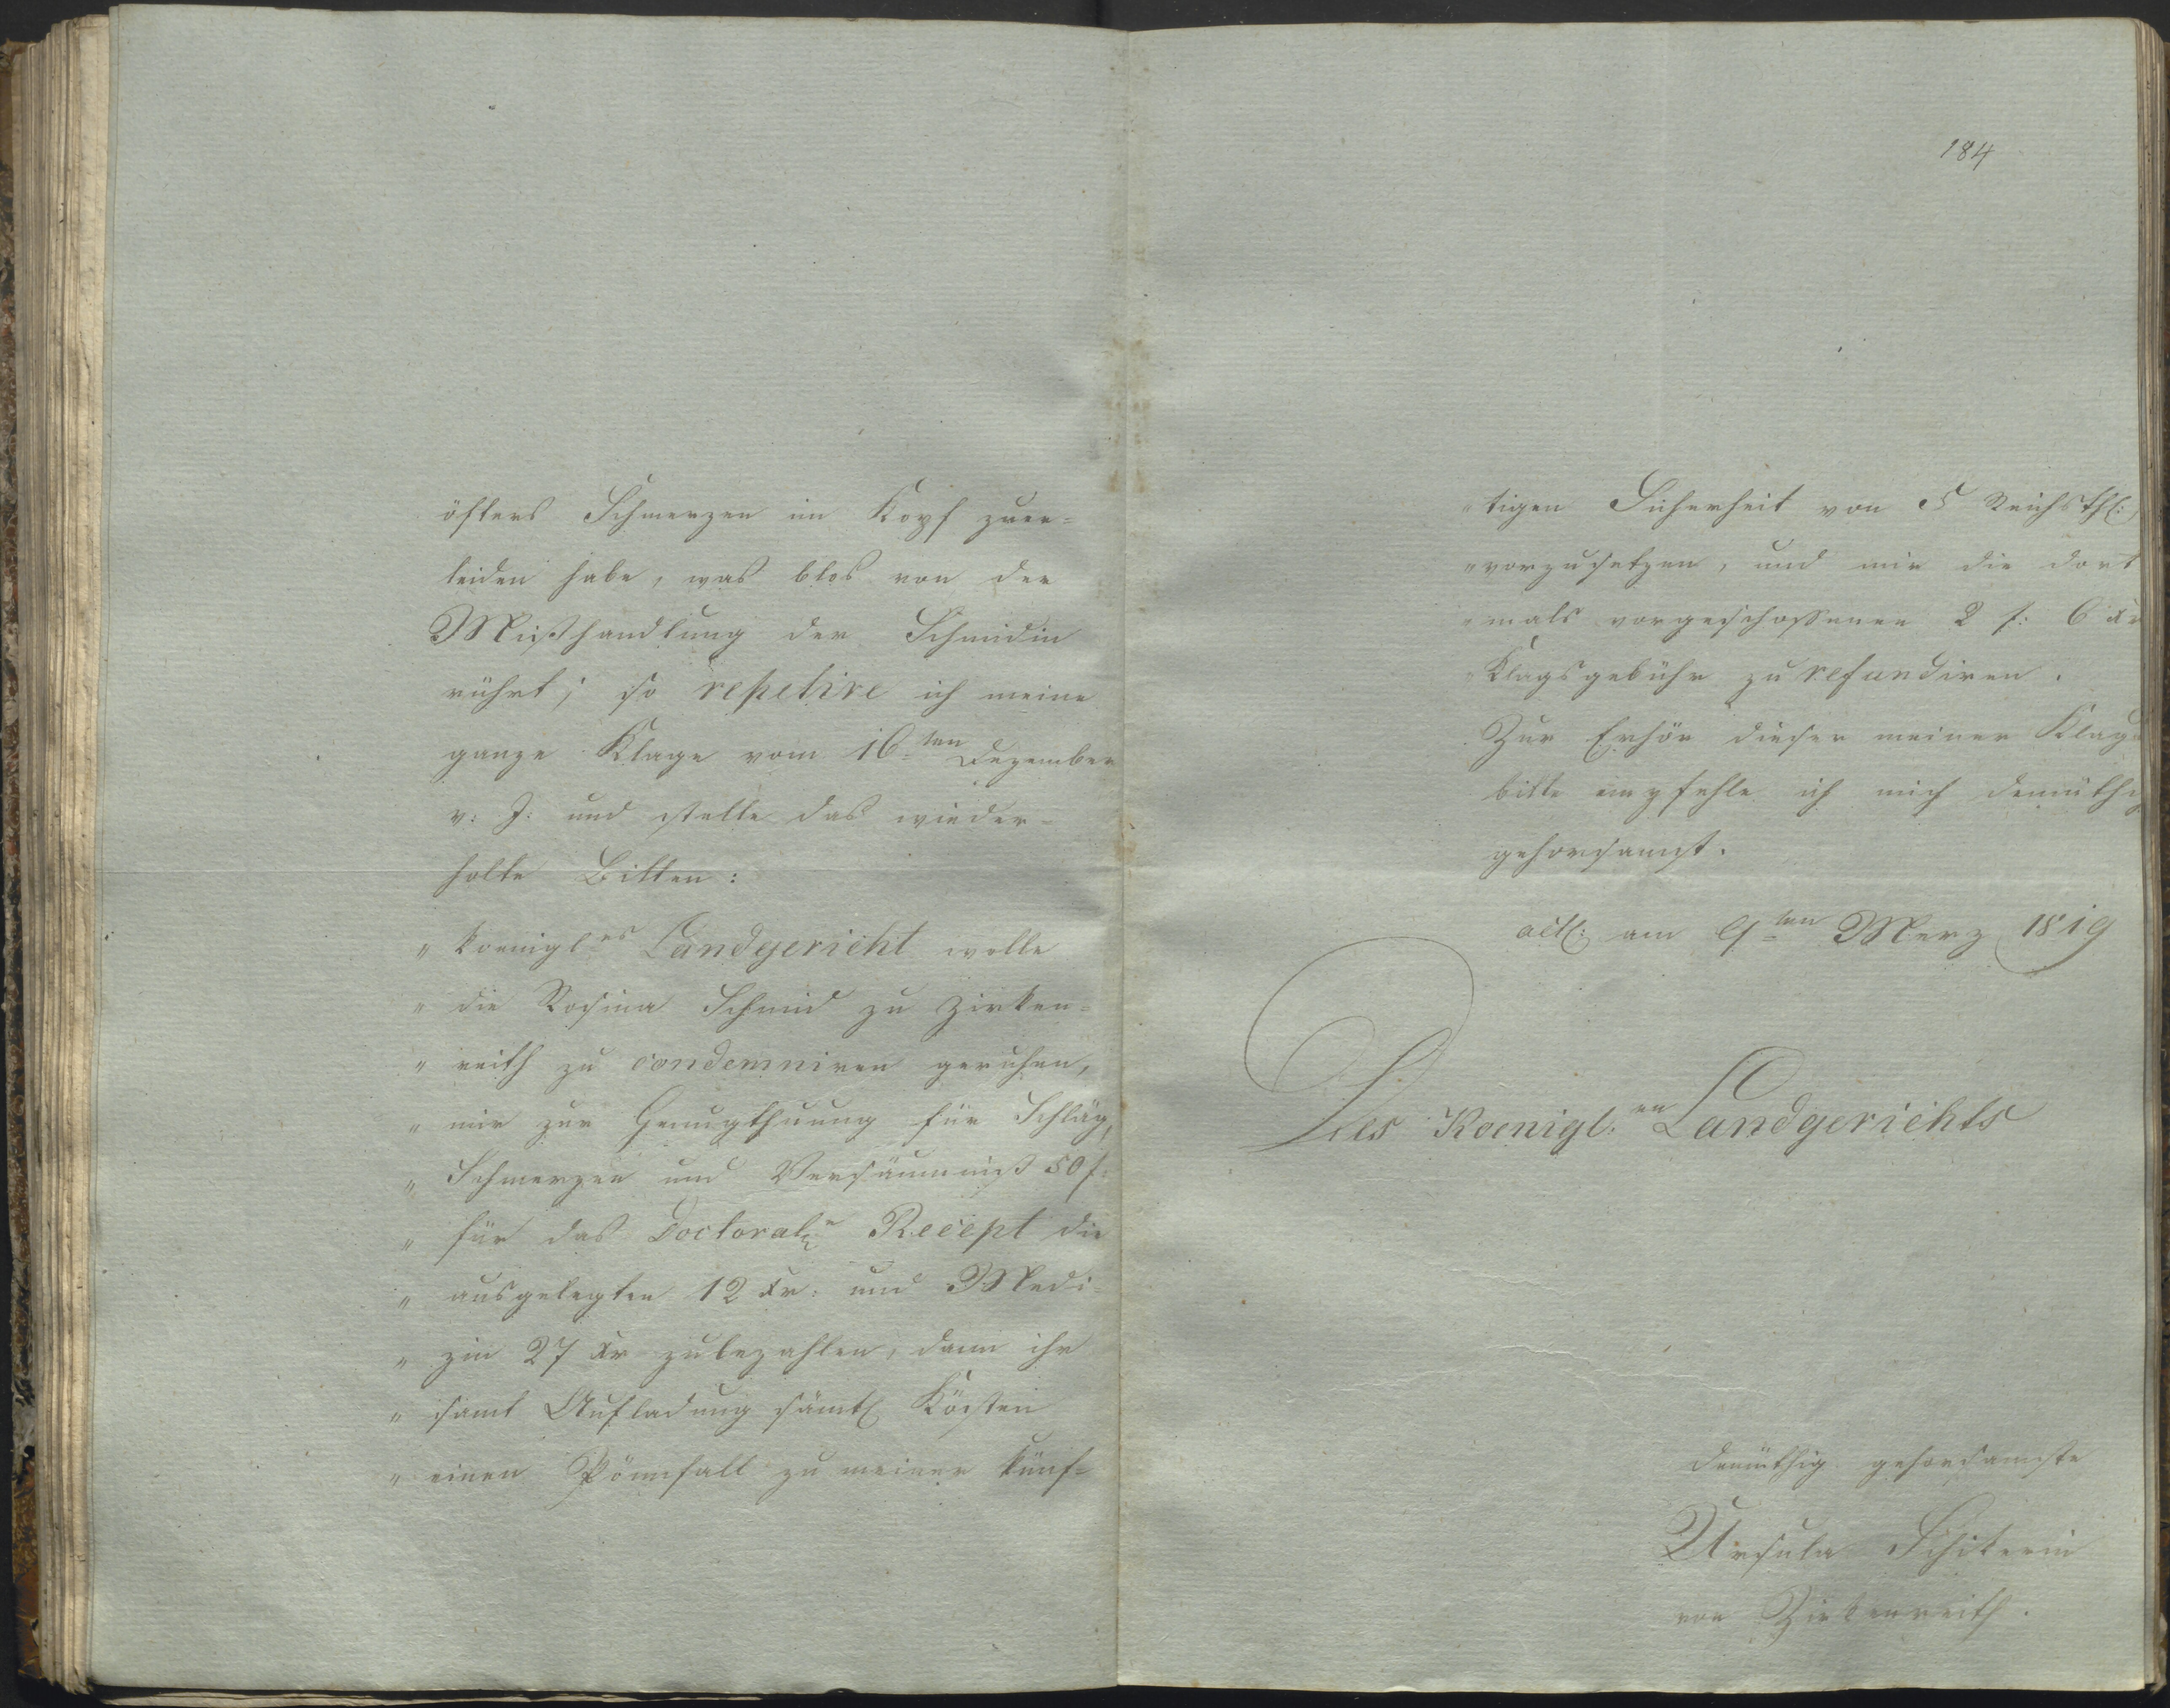 öfters Schmerzen im Kopf zuer=
leiden habe, was blos von der
Mißhandlung der Schmidin
rührt; so repetire ich meine
ganze Klage vom 16=ten Dezember
v: J: und stelle das wieder=
holte Bitten:
" koenigl=es Landgericht wolle
" die Rosina Schmid zu Zirken=
" reith zu condemniren geruhen,
" mir zur Genugthuung für Schläg,
" Schmerzen und Versäumniß 50 f:
" für das Doctoral= Recept die
" ausgelegten 12 xr: und Medi=
" zin 27 xr zubezahlen, dann ihr
" samt Aufladung sämtl Kösten
" einen Pönnfall zu meiner künf=
184
" tigen Sicherheit von 5 Reichsthl:
" vorzusetzen, und mir die dort
" mals vorgeschossenen 2 f: 6 xr
" Klagsgebühr zu refundiren.
Zur Erhör dieser meiner Klag
bitte empfehle ich mich demüthig
gehorsamst.
actl: am 9=ten Merz 1819
Des Koenigl:en Landgerichts
demüthig gehorsamste
Ursula Schiterin
von Zirkenreith.